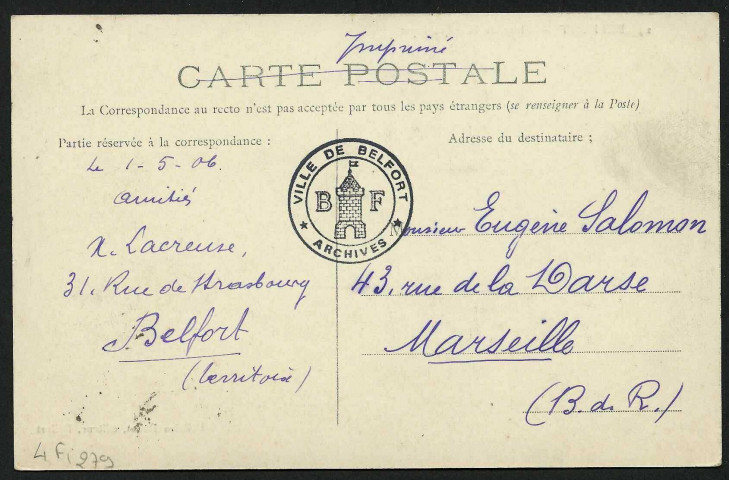 Imprimé
CARTE POSTALE
La Correspondance au recto n'est pas acceptée par tous les pays étrangers (se renseigner à la Poste)
Partie réservée à la correspondance :
Le 1-5-06.
amitiés
31. Rue de Strasbourg
Belfort
(territoire)
VILLE DE BELFORT
B F
★ ARCHIVES ★
Adresse du destinataire ;
Monsieur Eugène Salomon
43, rue de la Darse
Marseille
(B. d. R.)
4 Fi 279